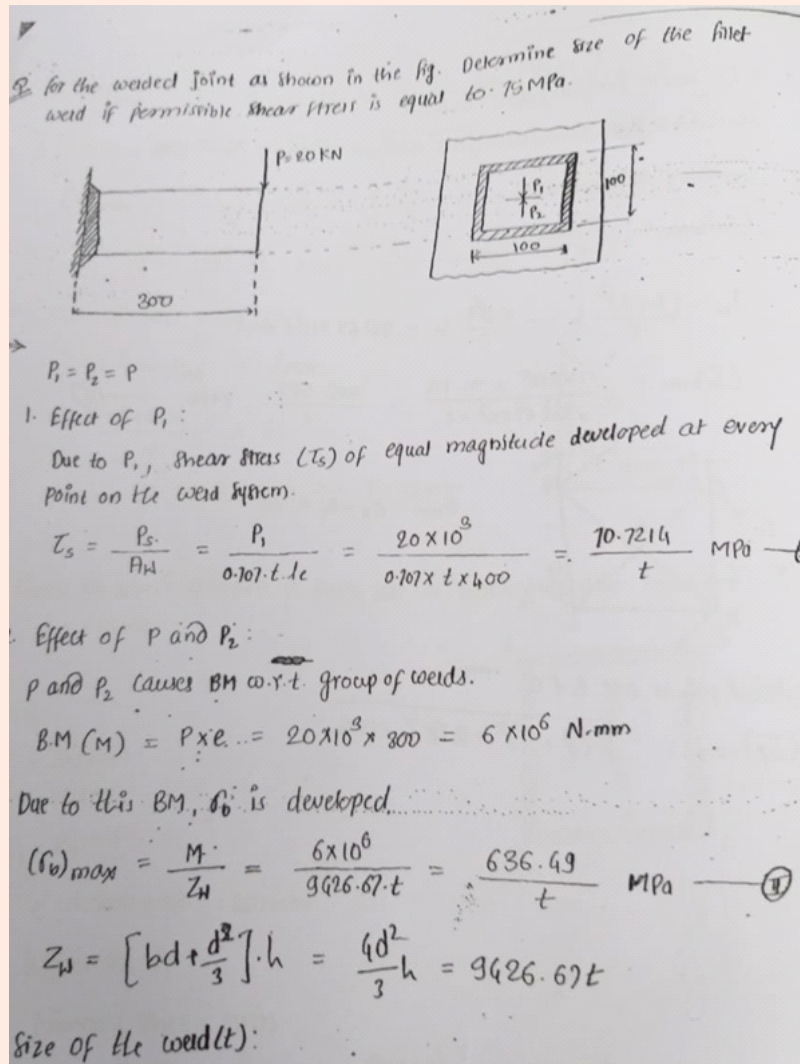 Q. for the welded joint as shown in the fig. Determine size of the fillet
weld if permissible shear stress is equal to 75 MPa.
P=20KN
300
P₁
P₂
100
100
P₁ = P₂ = P
1. Effect of P₁ :
Due to P₁, shear stress (τs) of equal magnitude developed at every
point on the weld system.
τs = Ps / Aw = P₁ / 0.707.t.le = 20×10³ / 0.707×t×400 = 70.7214 / t MPa
Effect of P and P₂ :
P and P₂ causes BM w.r.t. group of welds.
B.M (M) = P×e = 20×10³×300 = 6×10⁶ N-mm
Due to this BM, σb is developed.
(σb)max = M / Zw = 6×10⁶ / 9426.67.t = 636.49 / t MPa — II
Zw = [bd+d²/3].h = 4d²/3 h = 9426.67t
Size of the weld(t):